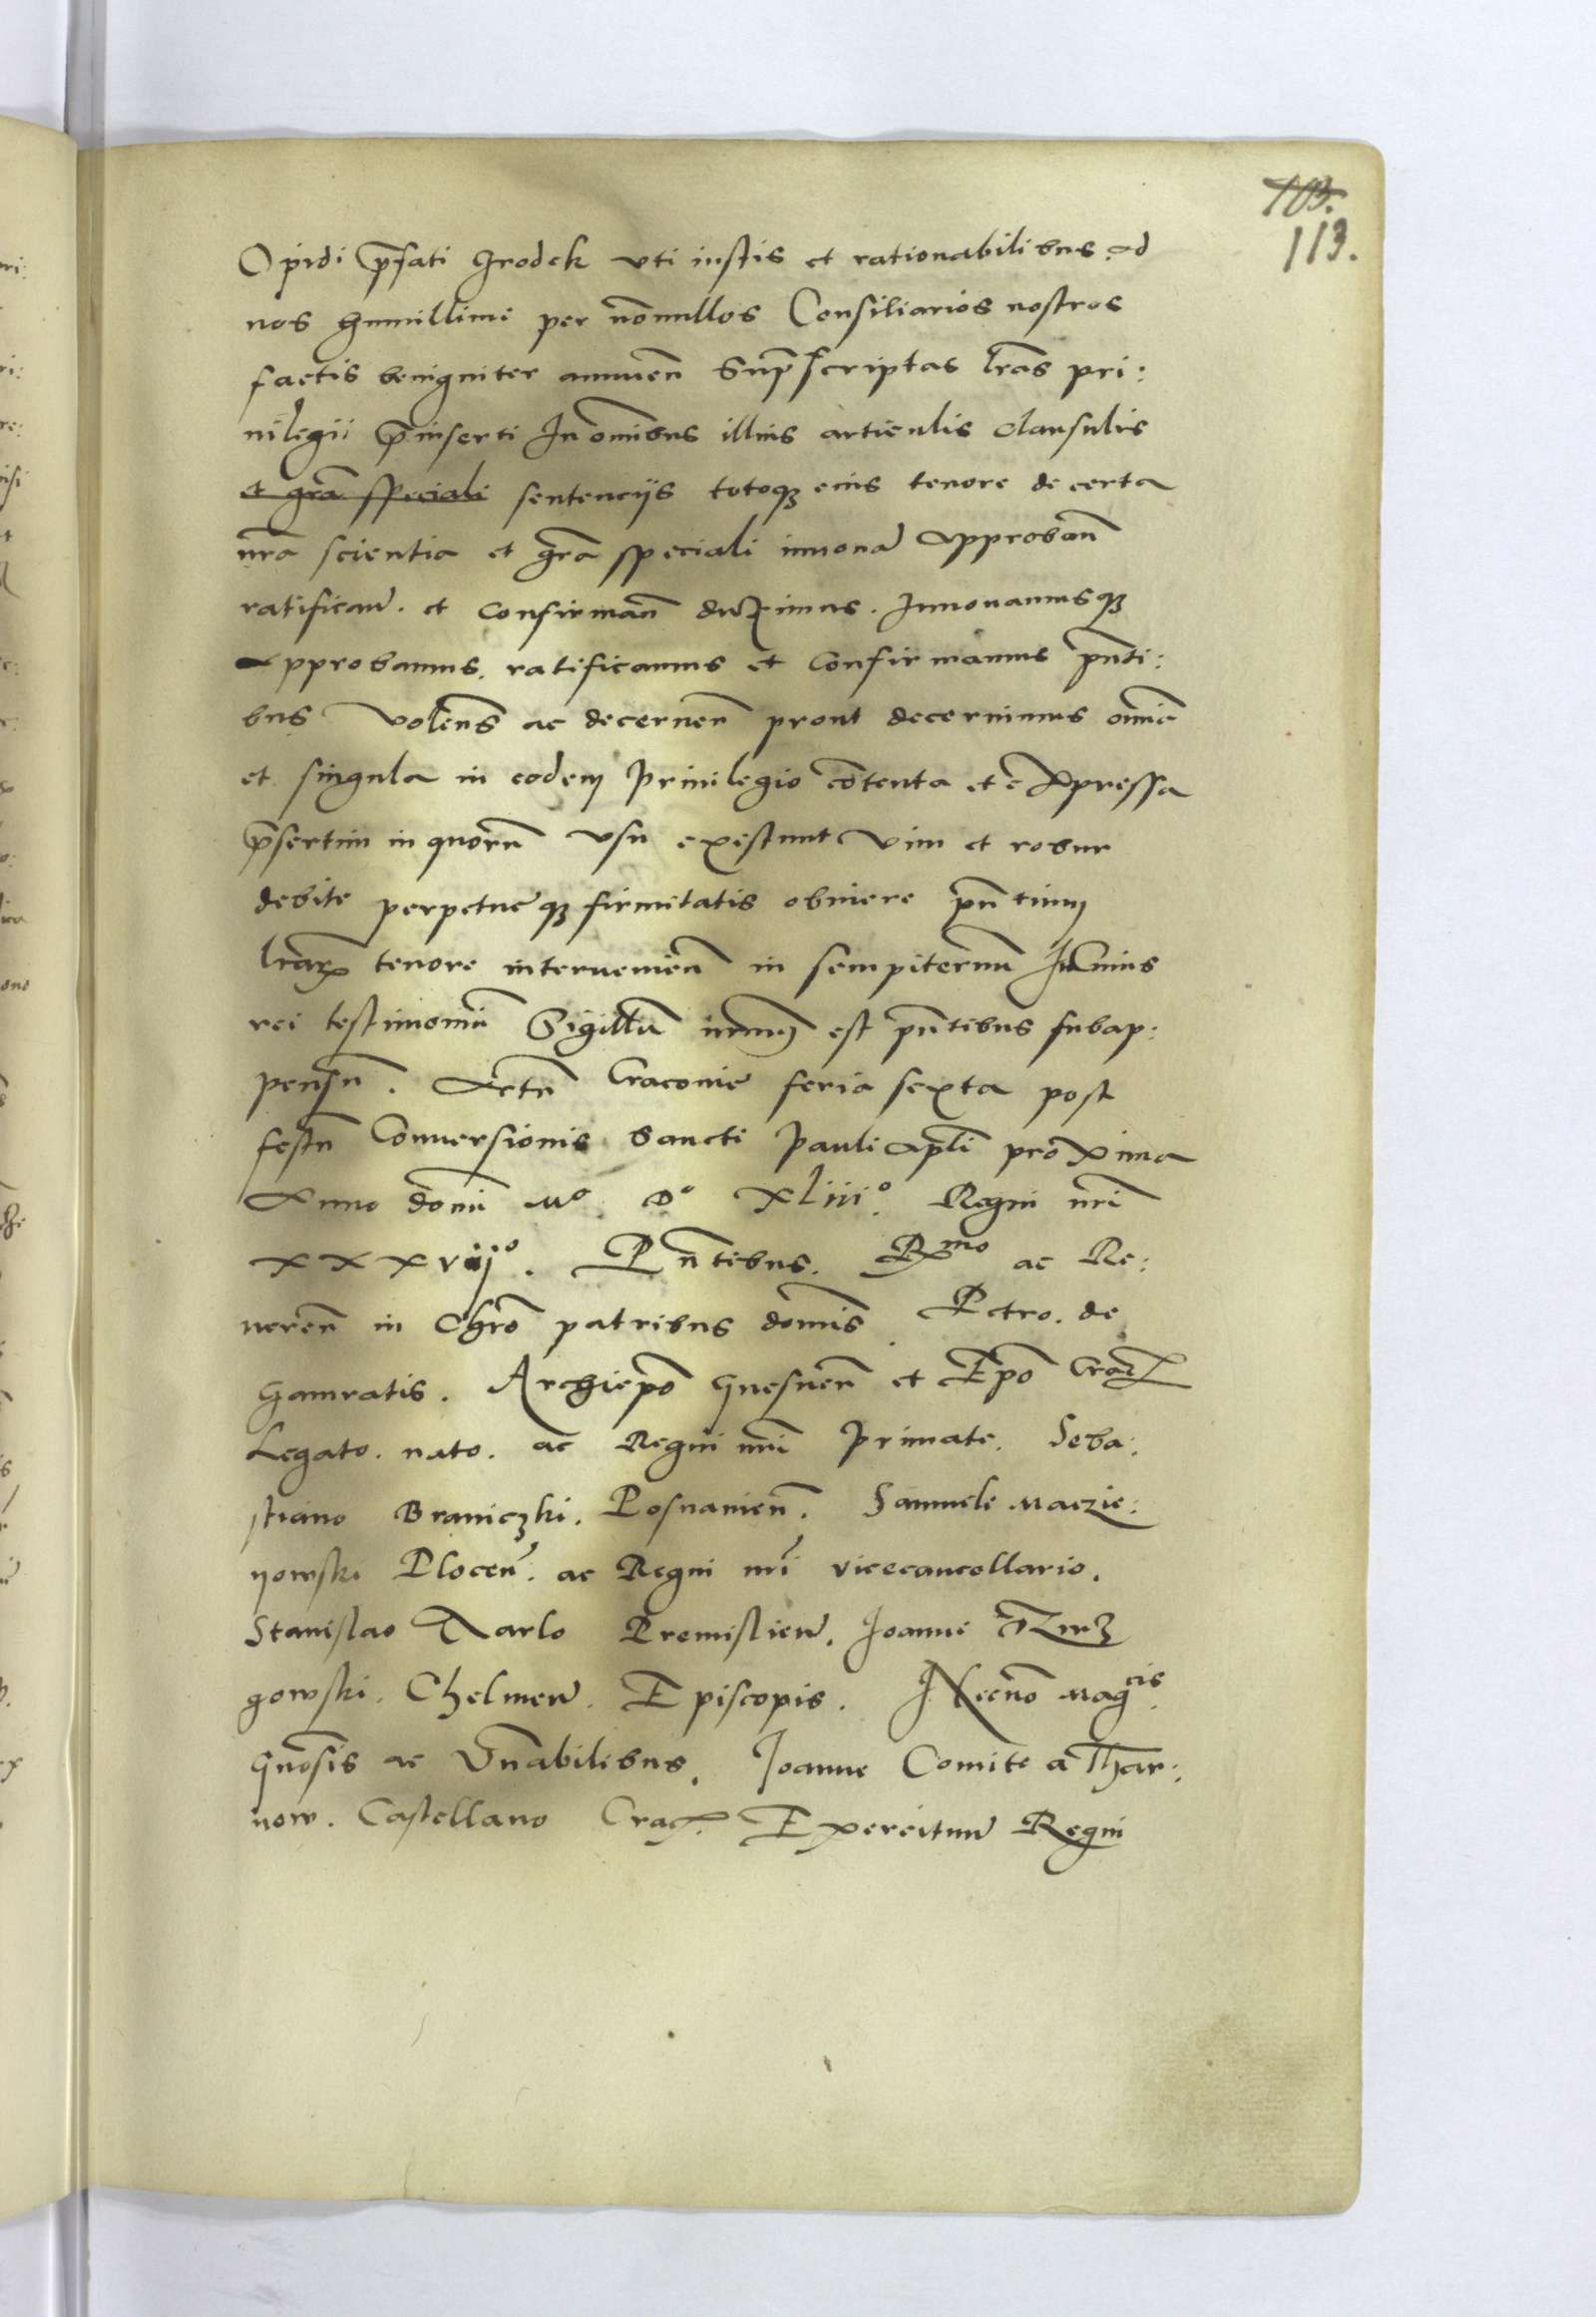 103.
113.
Opidi p̄fati Grodek vti iustis et rationabilibus ad
nos humillime per nōnullos Consiliarios nostros
factis benigniter annuen̄ Sup̄scriptas lr̄as pri:
uilegii p̄inserti In om̄ibus illius articulis clausulis
et gr̄a speciali sentencijs totoqꝫ eius tenore de certa
nr̄a scientia et gr̄a speciali innouan̄ approban̄
ratifican̄. et confirman̄ duximus. Innouamusqꝫ
Approbamus. ratificamus et confirmamus pn̄ti:
bus volen̄s ac decernen̄ prout decernimus om̄ia
et singula in eodem priuilegio cōtenta et expressa
p̄sertim in quorū vsu existunt vim et robur
debite perpetueqꝫ firmitatis obtinere pn̄tium
lr̄aꝝ tenore interuenien̄ in sempiternū In Cuius
rei testimoniū Sigillū nr̄um est pn̄tibus subap:
pensū. Actū Cracouie feria sexta post
festū Conuersionis Sancti Pauli apl̄i proxima
Anno domī Mº. Dº XLiiiº. Regni nr̄i
XXXvijº. Pn̄tibus. Rmo ac Re:
ueren̄ in Chrō patribus domīs Petro. de
Gamratis. Archiep̄o Gnesnen̄ et Ep̄o Crac̄
Legato. nato. ac Regni nr̄i primate. Seba:
stiano Braniczki. Posnanien̄. Samuele Maczie:
yowski Plocen̄. ac Regni nr̄i vicecancellario.
Stanislao Tarlo Premislien̄. Joanne Dzurz
gowski. Chelmen̄. Episcopis. Necnō Magcis
Gnōsis ac Vn̄abilibus. Joanne Comite a Thar:
now. Castellano Crac̄. Exercituum Regni